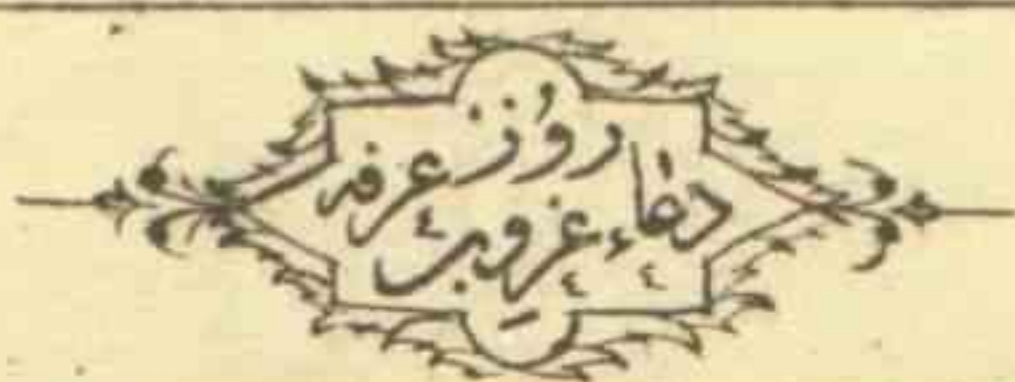 دعاء غروب روز عرفه